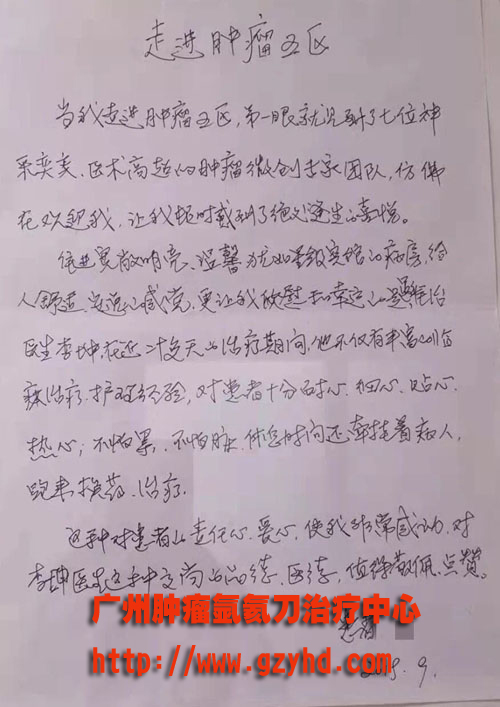 走进肿瘤五区
当我走进肿瘤五区,第一眼就见到了七位神
采奕奕、医术高超的肿瘤微创专家团队,仿佛
在欢迎我,让我顿时感到了绝处逢生的喜悦。
走进宽敞明亮、温馨犹如星级宾馆的病房,给
人舒适、安逸的感觉,更让我欣慰和幸运的是主治
医生李坤,在近二十多天的治疗期间,他不仅有丰富的临
床治疗、护理经验,对患者十分耐心、细心、贴心、
热心;不怕累、不怕脏、休息时间还牵挂着病人,
跑来换药、治疗。
这种对患者的责任心、爱心,使我非常感动,对
李坤医生这种高尚的品德、医德,值得敬佩、点赞。
患者
2019.9.
广州肿瘤氩氦刀治疗中心
http://www.gzyhd.com